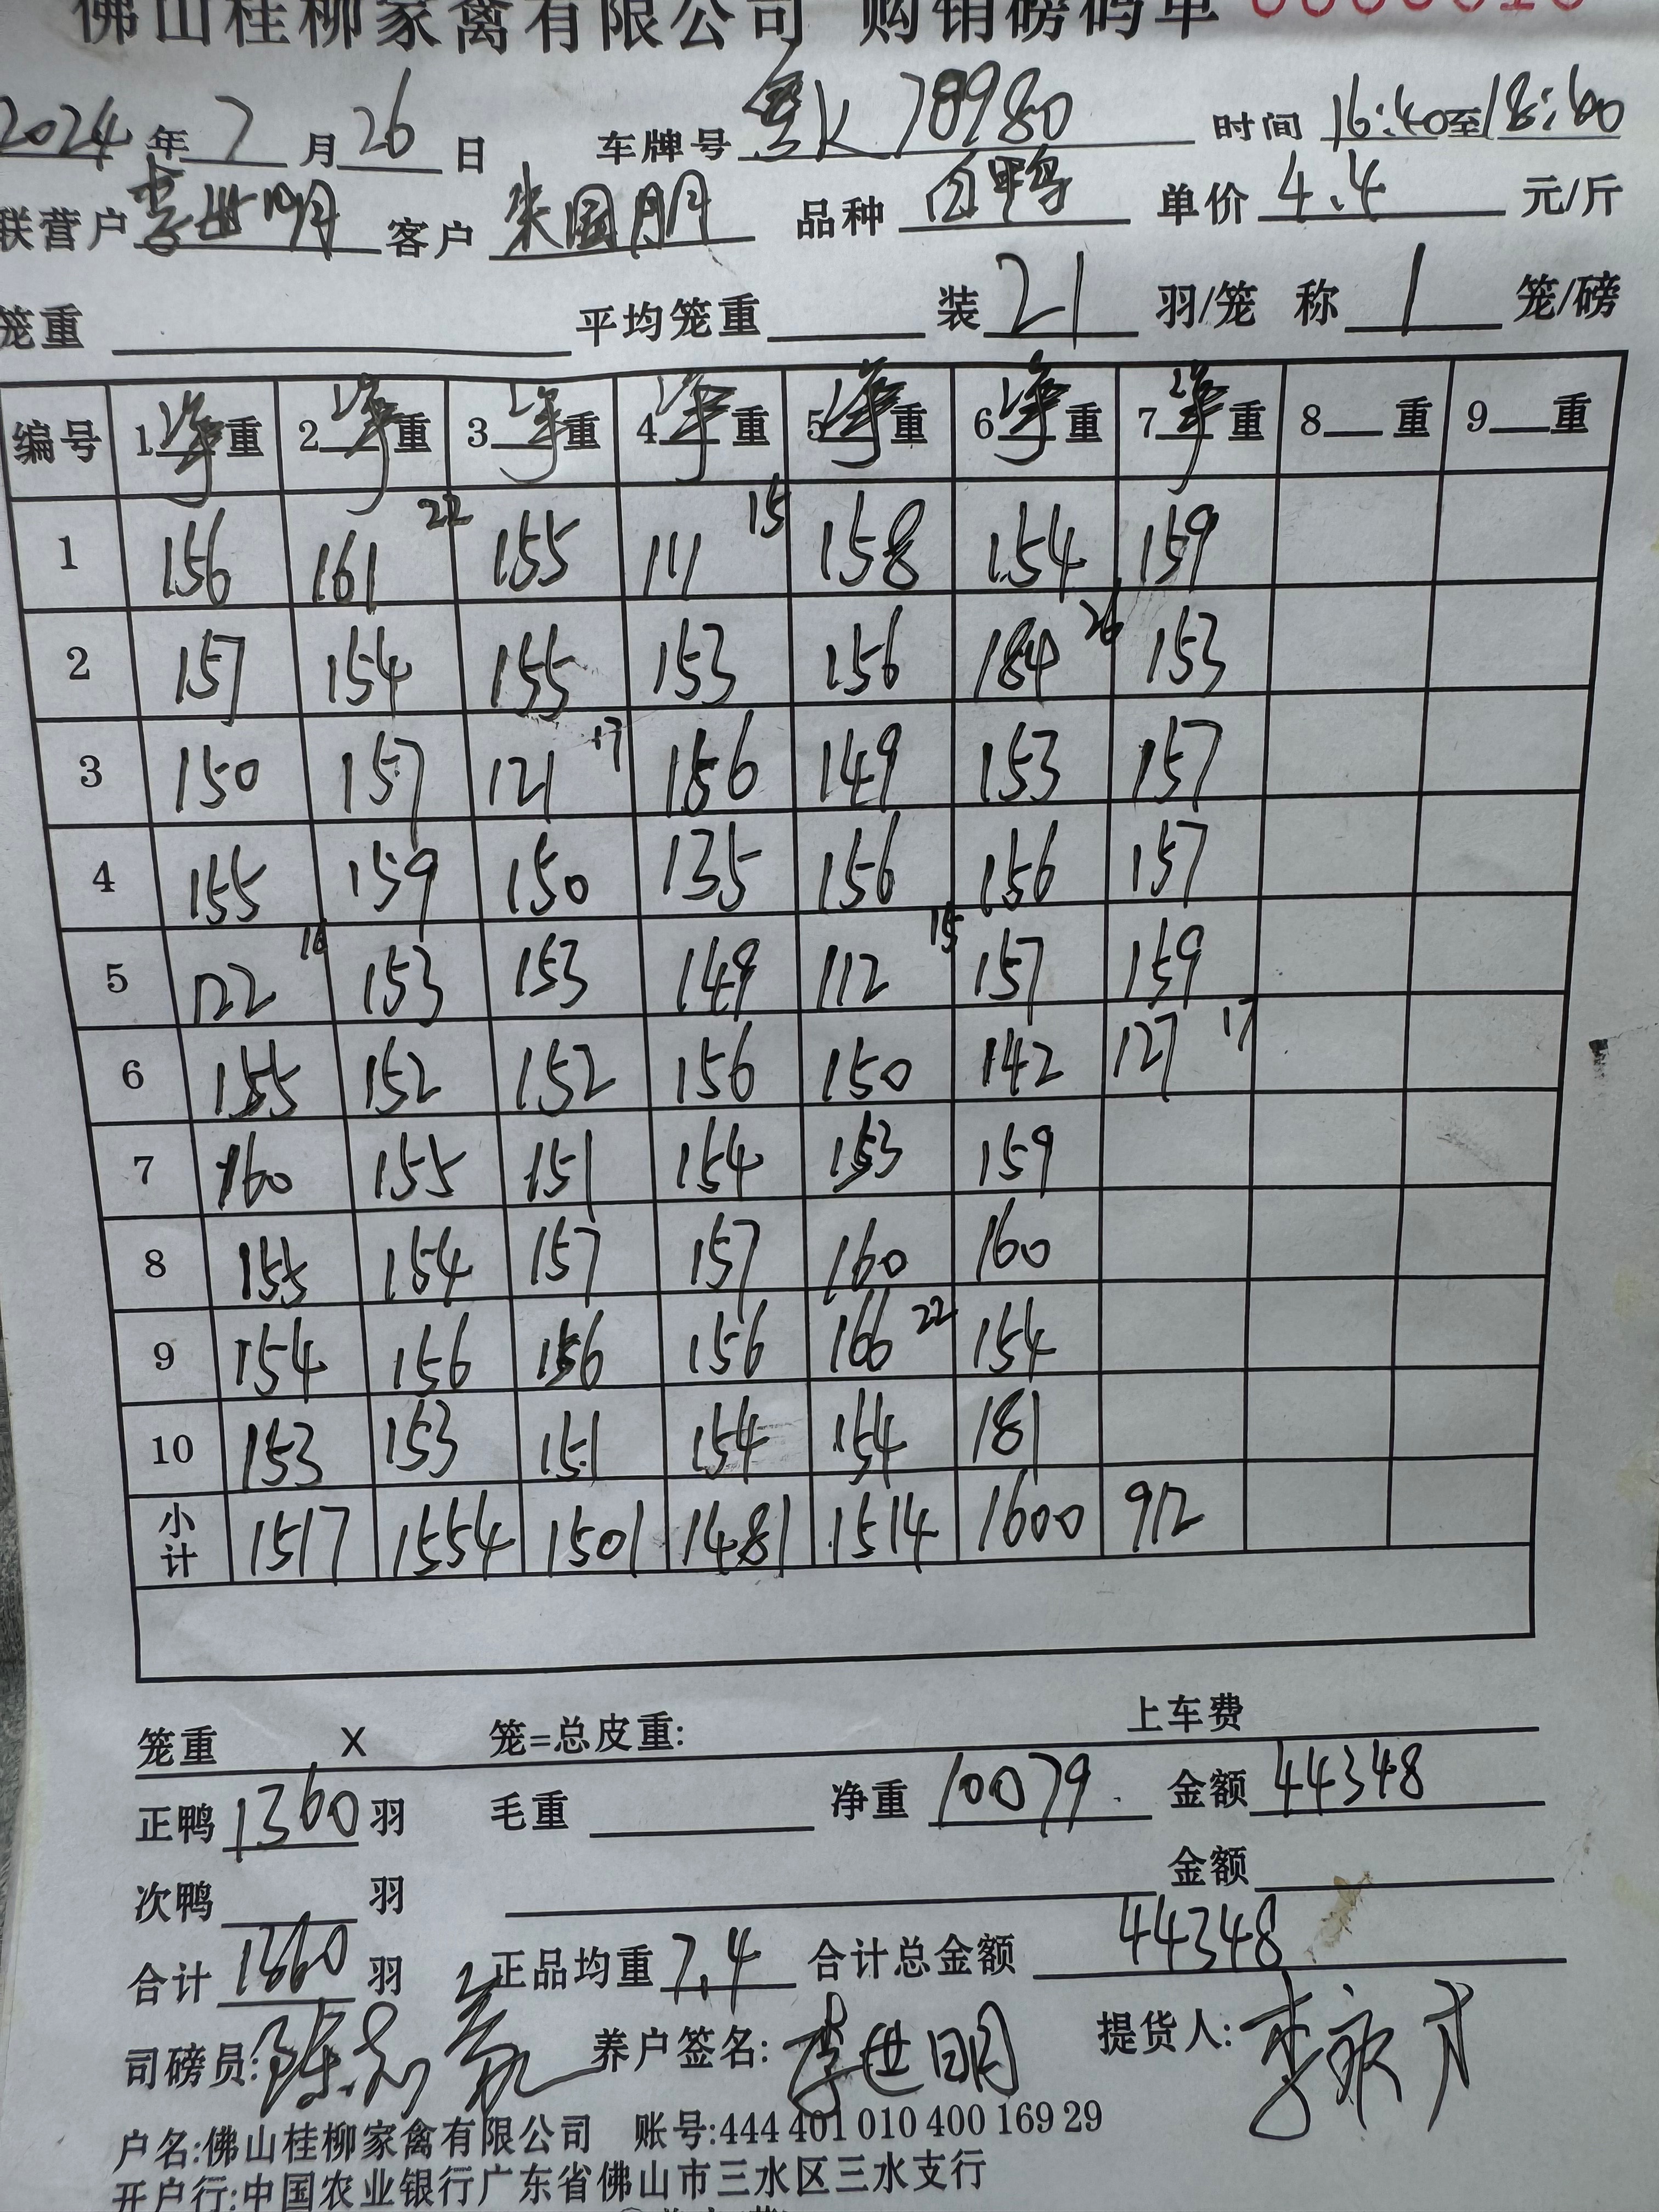 佛山桂柳家禽有限公司 购销磅码单
2024年7月26日 车牌号 粤K78980 时间 16:40至18:40
联营户 李世明 客户 朱国朋 品种 白鸭 单价 4.4 元/斤
笼重 平均笼重 装 21 羽/笼 称 1 笼/磅
编号 1净重 2净重 3净重 4净重 5净重 6净重 7净重 8 重 9 重
1 156 161 22 155 111 15 158 154 159
2 157 154 155 153 156 184 26 153
3 150 157 121 17 156 149 153 157
4 155 159 150 135 156 156 157
5 122 16 153 153 149 112 15 157 159
6 155 152 152 156 150 142 127 17
7 160 155 151 154 153 159
8 155 154 157 157 160 160
9 154 156 156 156 166 22 154
10 153 153 151 154 154 181
小计 1517 1554 1501 1481 1514 1600 912
笼重 X 笼=总皮重: 上车费
正鸭 1360 羽 毛重 净重 10079. 金额 44348
次鸭 羽 金额
合计 1360 羽 正品均重 7.4 合计总金额 44348
司磅员: 养户签名: 李世明 提货人:
户名:佛山桂柳家禽有限公司 账号:444 401 010 400 169 29
开户行:中国农业银行广东省佛山市三水区三水支行